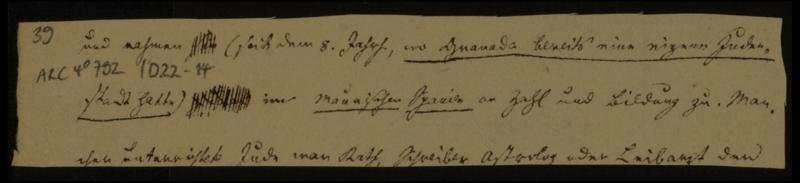 39
und nahmen (seit dem 8. Jahrh., wo Granada bereits eine eigene Juden-
ARC 4° 792 / D22-14
stadt hatte) im maurischen Spanien an Zahl und Bildung zu. Man-
cher unterrichtete Jude war Rath, Schreiber Astrolog oder Leibarzt des